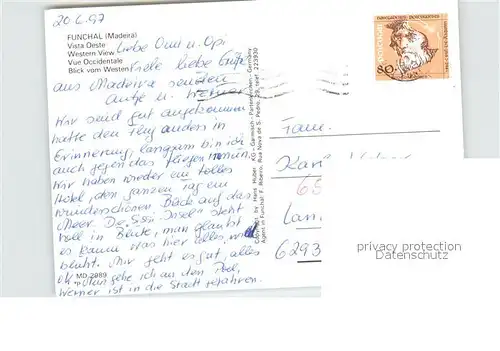 20.6.97
FUNCHAL (Madeira)
Vista Oeste
Western View
Vue Occidentale
Blick vom Westen
Liebe Omi u. Opi
Viele liebe Grüße
aus Madeira senden
Antje u. Werner
Wir sind gut angekommen
hatte den Flug anders in
Erinnerung, langsam bin ich
auch gegen das Fliegen immun.
Wir haben wieder ein tolles
Hotel, den ganzen Tag ein
wunderschönen Blick auf das
Meer. Die Sissi Insel steht
voll in Blüte, man glaubt
es kaum was hier alles
blüht. Mir geht es gut, alles
ok. gehe ich an den Pool,
Werner ist in die Stadt gefahren.
MD 2989
Copyright by Hans Huber KG - Garmisch-Partenkirchen - Germany
Agent in Funchal F. Ribeiro, Rua Nova de S. Pedro, telef 223930
PORTUGAL
80.
Fam.
Kar
65
Lan
6293
privacy protection
Datenschutz